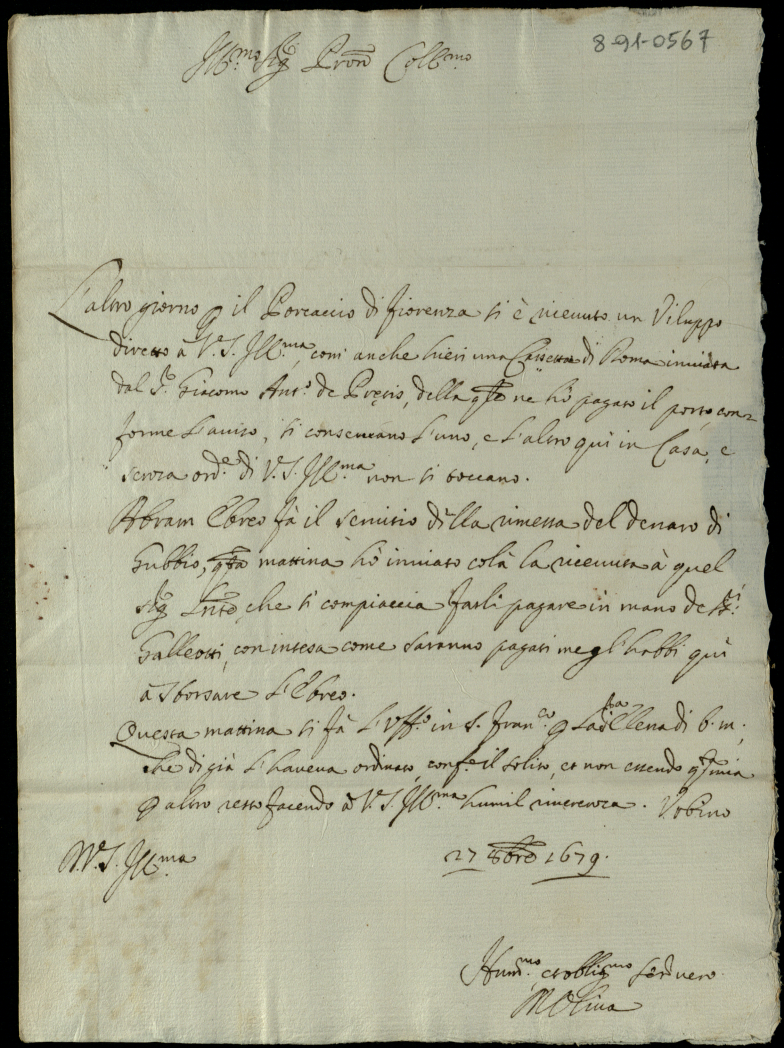 8-91-0567
Ill.mo Sig.r Pron Coll.mo
L'altro giorno p il Porcaccio di fiorenza si è riceuuto un Viluppo
diretto à V.S. Ill.ma, com' anche hieri una Cassetta di Roma inuiata
dal S.r Giacomo Ant.o de Precis, della q.le ne hò pagato il porto, con=
forme l'auiso, si conseruano l'uno, e l'altro qui in Casa, e
senza ord.e di V.S. Ill.ma non si toccano.
Abram Ebreo fà il seruitio della rimessa del denaro di
Gubbio, q.ta mattina hò inuiato colà la riceuuta à quel
Sig.r che si compiaccia farli pagare in mano de SS.ri
Galleotti, con intesa come saranno pagati me gl'habbi quì
à sborsare l'Ebreo.
Questa mattina si fà l'Uff.o in S. Fran.co p la d.ra Elena di b.m.,
che di già l'haueua ordinato, conf.e il solito, et non essendo q.ta mia
p altro resto facendo à V.S. Ill.ma humil riuerenza. Vrbino
D.V.S. Ill.ma
27 8bre 1679.
Hum.mo et oblig.mo seruero
M Oliua